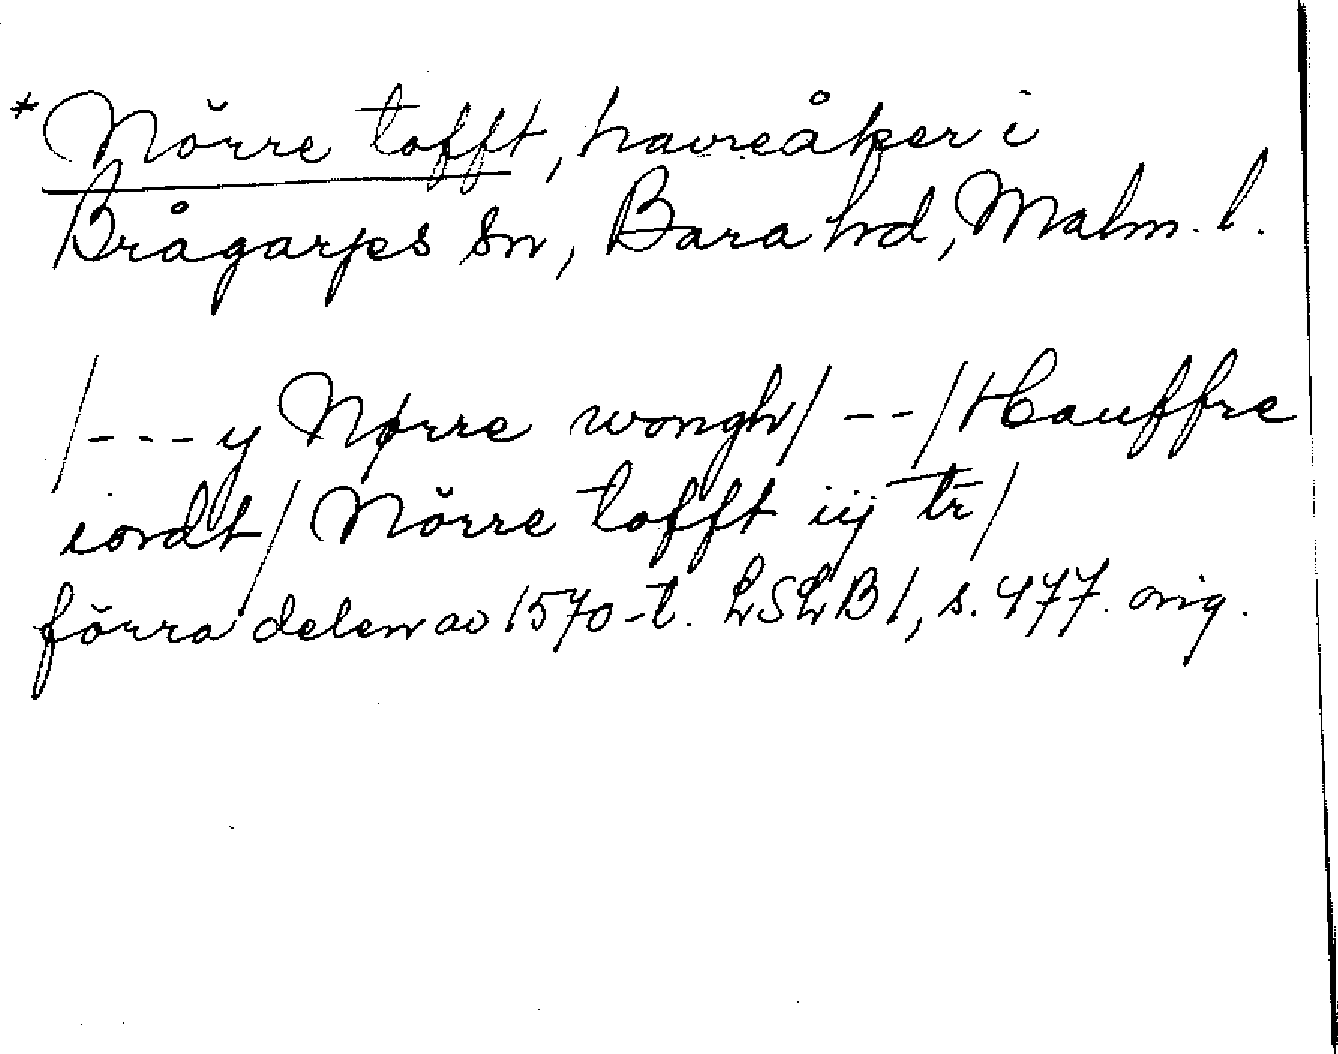 * Nörre tofft, havreåker i
Brågarps sn, Bara hd, Malm. l.
/---y Nørre wongh/ --/Hauffre
iordt/ Nörre tofft iij tr̄/
förra delen av 1570-t. LSLB 1, s. 477. orig.